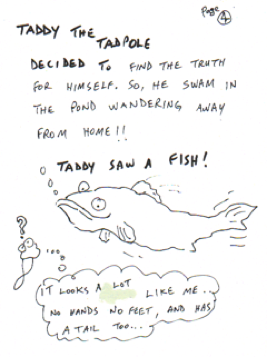 Page 4
TADDY THE
TADPOLE
DECIDED TO FIND THE TRUTH
FOR HIMSELF. SO, HE SWAM IN
THE POND WANDERING AWAY
FROM HOME!!
TADDY SAW A FISH!
?
IT LOOKS A LOT LIKE ME..
NO HANDS NO FEET, AND HAS
A TAIL TOO...